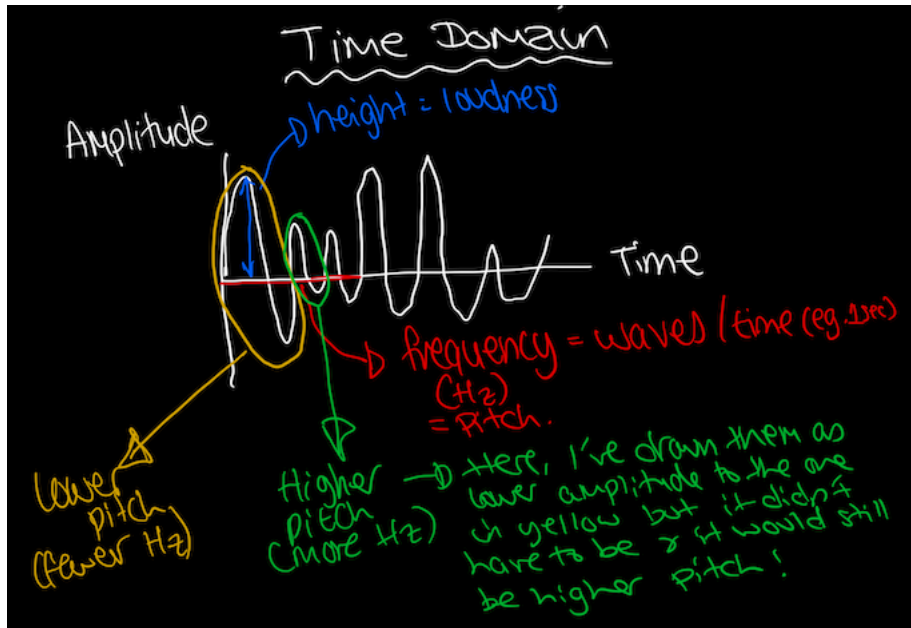 Time Domain
height = loudness
Amplitude
Time
frequency = waves / time (eg. 1sec)
(Hz)
= Pitch.
Lower
pitch
(fewer Hz)
Higher
pitch
(more Hz)
Here, I've drawn them as
lower amplitude to the one
in yellow but it didn't
have to be & it would still
be higher pitch!